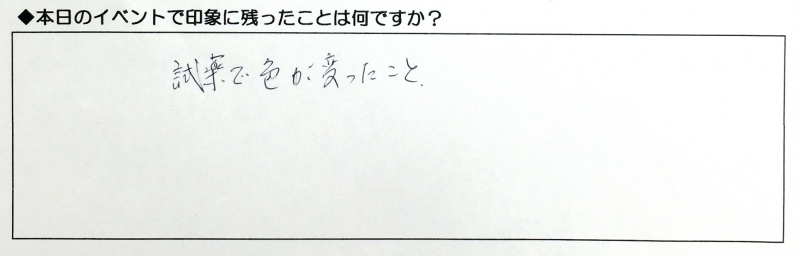 ◆本日のイベントで印象に残ったことは何ですか？
試薬で色が変ったこと.